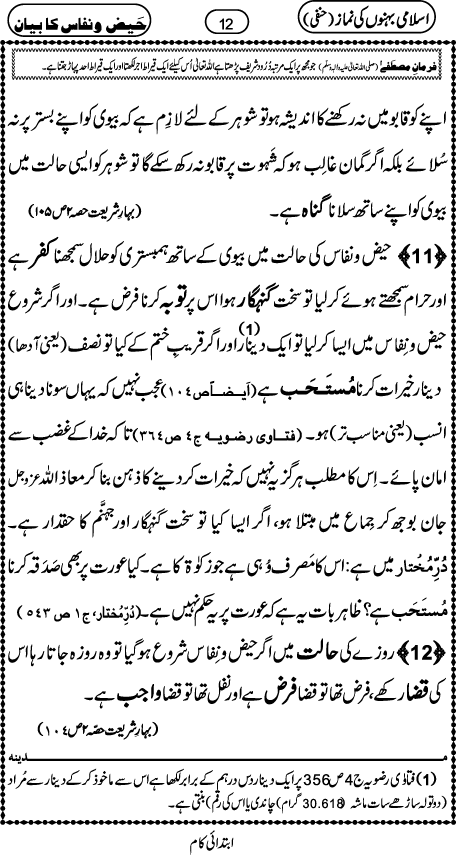 اسلامی بہنوں کی نماز (حنفی)
12
حَیض و نفاس کا بیان
فرمانِ مصطفےٰ (صلی اللہ تعالیٰ علیہ والہٖ وسلم) جو مجھ پر ایک مرتبہ دُرُود شریف پڑھتا ہے اللہ تعالیٰ اُس کیلئے ایک قیراط اجر لکھتا اور ایک قیراط احد پہاڑ جتنا ہے۔
اپنے کو قابو میں نہ رکھنے کا اندیشہ ہو تو شوہر کے لئے لازِم ہے کہ بیوی کو اپنے بستر پر نہ
سُلائے بلکہ اگر گمان غالِب ہو کہ شَہوت پر قابو نہ رکھ سکے گا تو شوہر کو ایسی حالت میں
بیوی کو اپنے ساتھ سلانا گناہ ہے۔ (بہارِ شریعت حصہ ۲ ص ۱۰۵)
﴿11﴾ حیض و نفاس کی حالت میں بیوی کے ساتھ ہمبستری کو حلال سمجھنا کفر ہے
اور حرام سمجھتے ہوئے کر لیا تو سخت گنہگار ہوا اس پر توبہ کرنا فرض ہے۔ اور اگر شروع
حیض و نِفاس میں ایسا کر لیا تو ایک دینار (1) اور اگر قریبِ ختم کے کیا تو نصف (یعنی آدھا)
دینار خیرات کرنا مُستَحَب ہے (اَیضاً ص ۱۰۴) عجب نہیں کہ یہاں سونا دینا ہی
انسب (یعنی مناسب تر) ہو۔ (فتاوی رضویہ ج ۴ ص ۳۶۴) تا کہ خدا کے غضب سے
امان پائے۔ اِس کا مطلب ہرگز یہ نہیں کہ خیرات کر دینے کا ذہن بنا کر معاذ اللہ عزوجل
جان بوجھ کر جِماع میں مبتلا ہو، اگر ایسا کیا تو سخت گنہگار اور جہنَّم کا حقدار ہے۔
دُرِّمُختار میں ہے: اس کا مَصرف وُہی ہے جو زکوٰۃ کا ہے۔ کیا عورت پر بھی صَدَقہ کرنا
مُستَحَب ہے؟ ظاہر بات یہ ہے کہ عورت پر یہ حکم نہیں ہے۔ (دُرِّمُختار، ج ۱ ص ۵۴۳)
﴿12﴾ روزے کی حالت میں اگر حیض و نِفاس شروع ہو گیا تو وہ روزہ جاتا رہا اس
کی قضا رکھے، فرض تھا تو قضا فرض ہے اور نفل تھا تو قضا واجب ہے۔
(بہارِ شریعت حصّہ ۲ ص ۱۰۴)
مدینہ
(1) فتاوٰی رضویہ ج 4 ص 356 پر ایک دینار دس درہم کے برابر لکھا ہے اس سے ماخوذ کر کے دینار سے مُراد
(دو تولہ ساڑھے سات ماشہ (30.618 گرام) چاندی یا اس کی رقم) بنتی ہے۔
ابتدائی کام